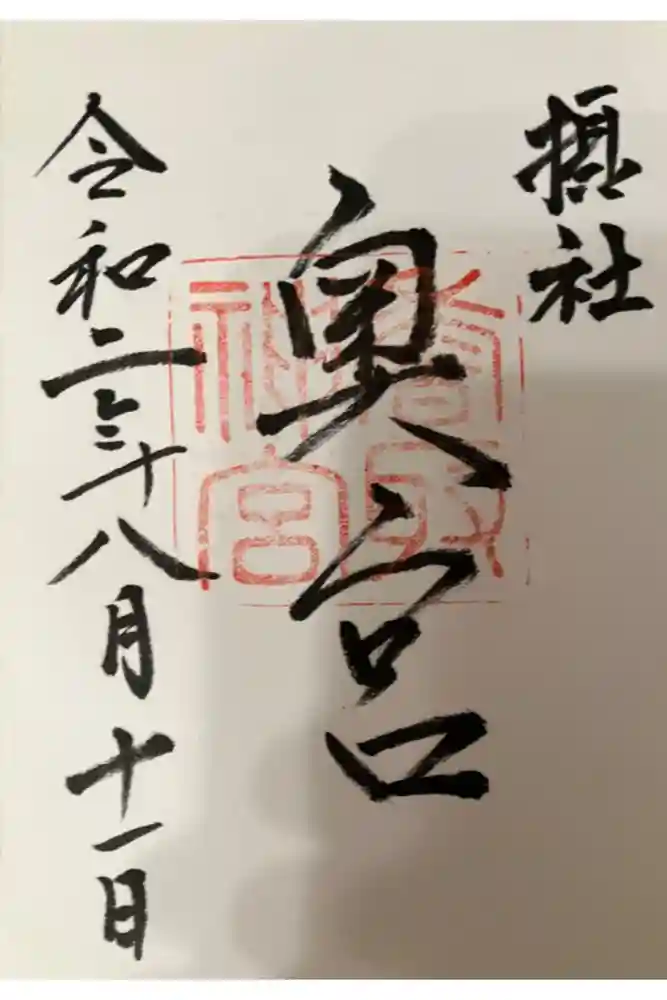 摂社
奥宮
香取神宮
令和二年八月十一日